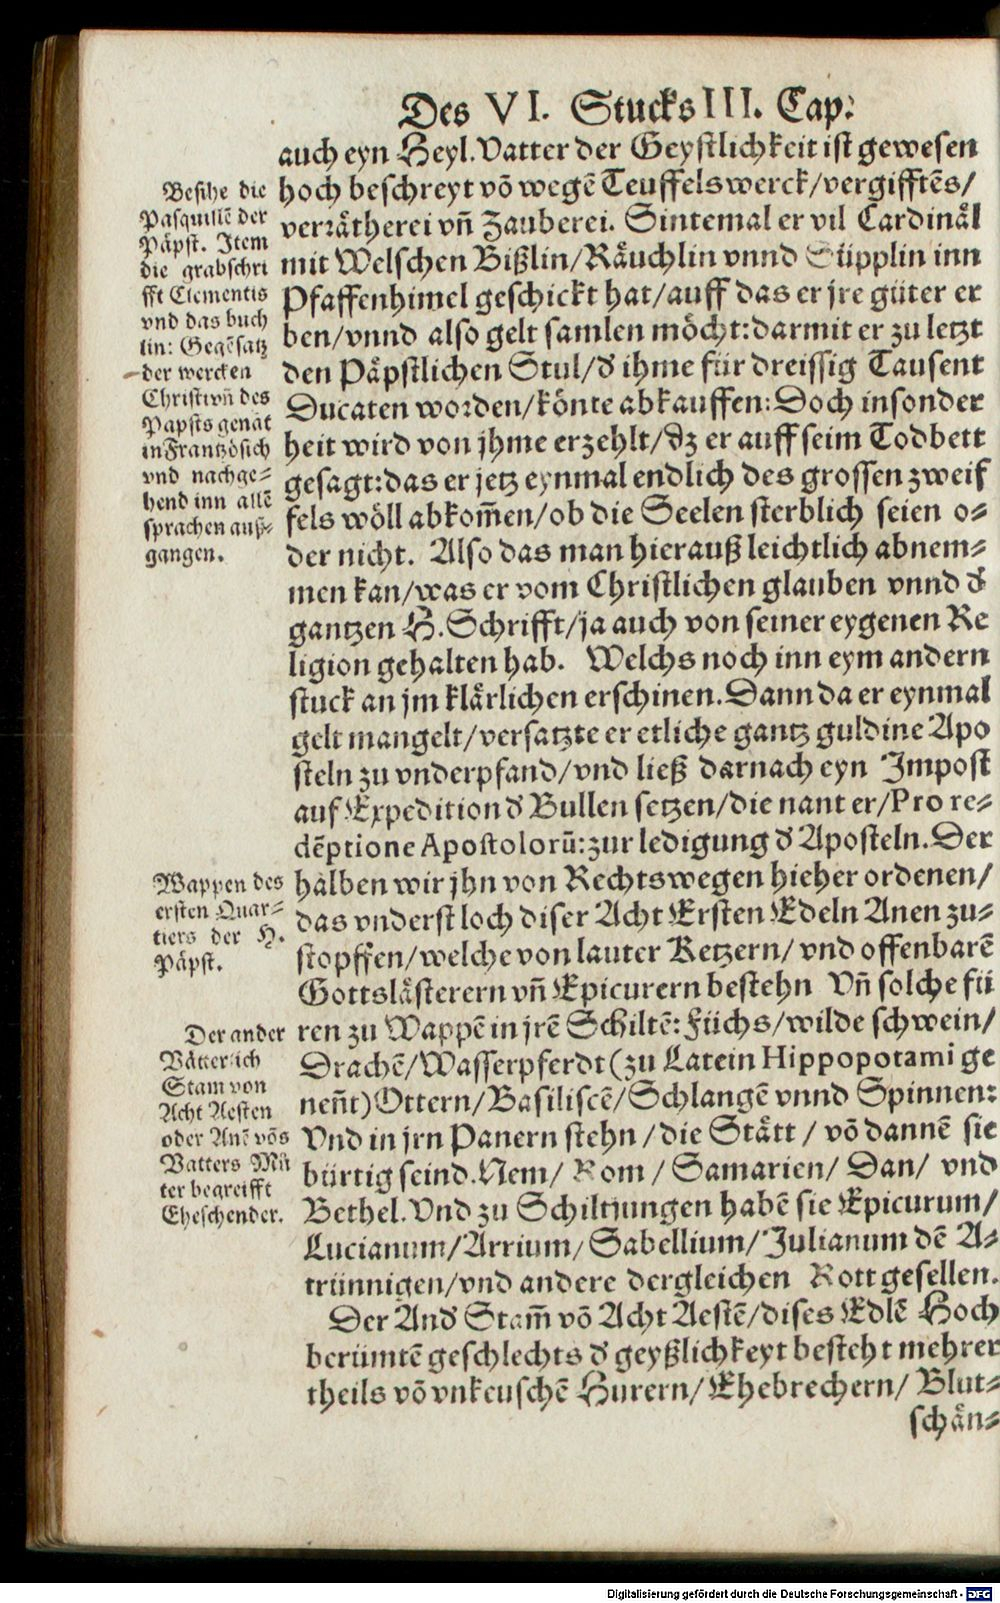 Des VI. Stucks III. Cap:
auch eyn Heyl. Vatter der Geystlichkeit ist gewesen
hoch beschreyt võ wegẽ Teuffelswerck/vergifftẽs/
verrätherei vñ Zauberei. Sintemal er vil Cardinäl
mit Welschen Bißlin/Räuchlin vnnd Süpplin inn
Pfaffenhimel geschickt hat/auff das er jre güter er
ben/vnnd also gelt samlen möcht: darmit er zu letzt
den Päpstlichen Stul/d' ihme für dreissig Tausent
Ducaten worden/könte abkauffen: Doch insonder
heit wird von jhme erzehlt/dz er auff seim Todbett
gesagt: das er jetz eynmal endlich des grossen zweif
fels wöll abkom̃en/ob die Seelen sterblich seien o=
der nicht. Also das man hierauß leichtlich abnem=
men kan/was er vom Christlichen glauben vnnd d'
gantzen H. Schrifft/ja auch von seiner eygenen Re
ligion gehalten hab. Welchs noch inn eym andern
stuck an jm klärlichen erschinen. Dann da er eynmal
gelt mangelt/versatzte er etliche gantz guldine Apo
steln zu vnderpfand/vnd ließ darnach eyn Impost
auf Expedition d' Bullen setzen/die nant er/Pro re=
dẽptione Apostolorũ: zur ledigung d' Aposteln. Der
halben wir jhn von Rechtswegen hieher ordenen/
das vnderst loch diser Acht Ersten Edeln Anen zu=
stopffen/welche von lauter Ketzern/vnd offenbarẽ
Gottslästerern vñ Epicurern bestehn Vñ solche fü
ren zu Wappẽ in jrẽ Schiltẽ: Füchs/wilde schwein/
Drachẽ/Wasserpferdt (zu Latein Hippopotami ge
neñt) Ottern/Basiliscẽ/Schlangẽ vnnd Spinnen:
Vnd in jrn Panern stehn/die Stätt/võ dannẽ sie
bürtig seind. Nem/Rom/Samarien/Dan/vnd
Bethel. Vnd zu Schiltjungen habẽ sie Epicurum/
Lucianum/Arrium/Sabellium/Julianum dẽ A=
trünnigen/vnd andere dergleichen Rottgesellen.
Der And' Stam̃ võ Acht Aestẽ/dises Edlẽ Hoch
berümtẽ geschlechts d' geyßlichkeyt besteht mehrer
theils võ vnkeuschẽ Hurern/Ehebrechern/Blut=
schän=
Besihe die
Pasquillẽ der
Päpst. Item
die grabschri
fft Clementis
vnd das buch
lin: Gegẽsatz
der wercken
Christi vñ des
Papsts genãt
in Frantzösich
vnd nachge=
hend inn allẽ
sprachen auß=
gangen.
Wappen des
ersten Quar=
tiers der H.
Päpst.
Der ander
Vätterlich
Stam von
Acht Aesten
oder Anẽ võs
Vatters Mů
ter begreifft
Eheschender.
Digitalisierung gefördert durch die Deutsche Forschungsgemeinschaft - DFG